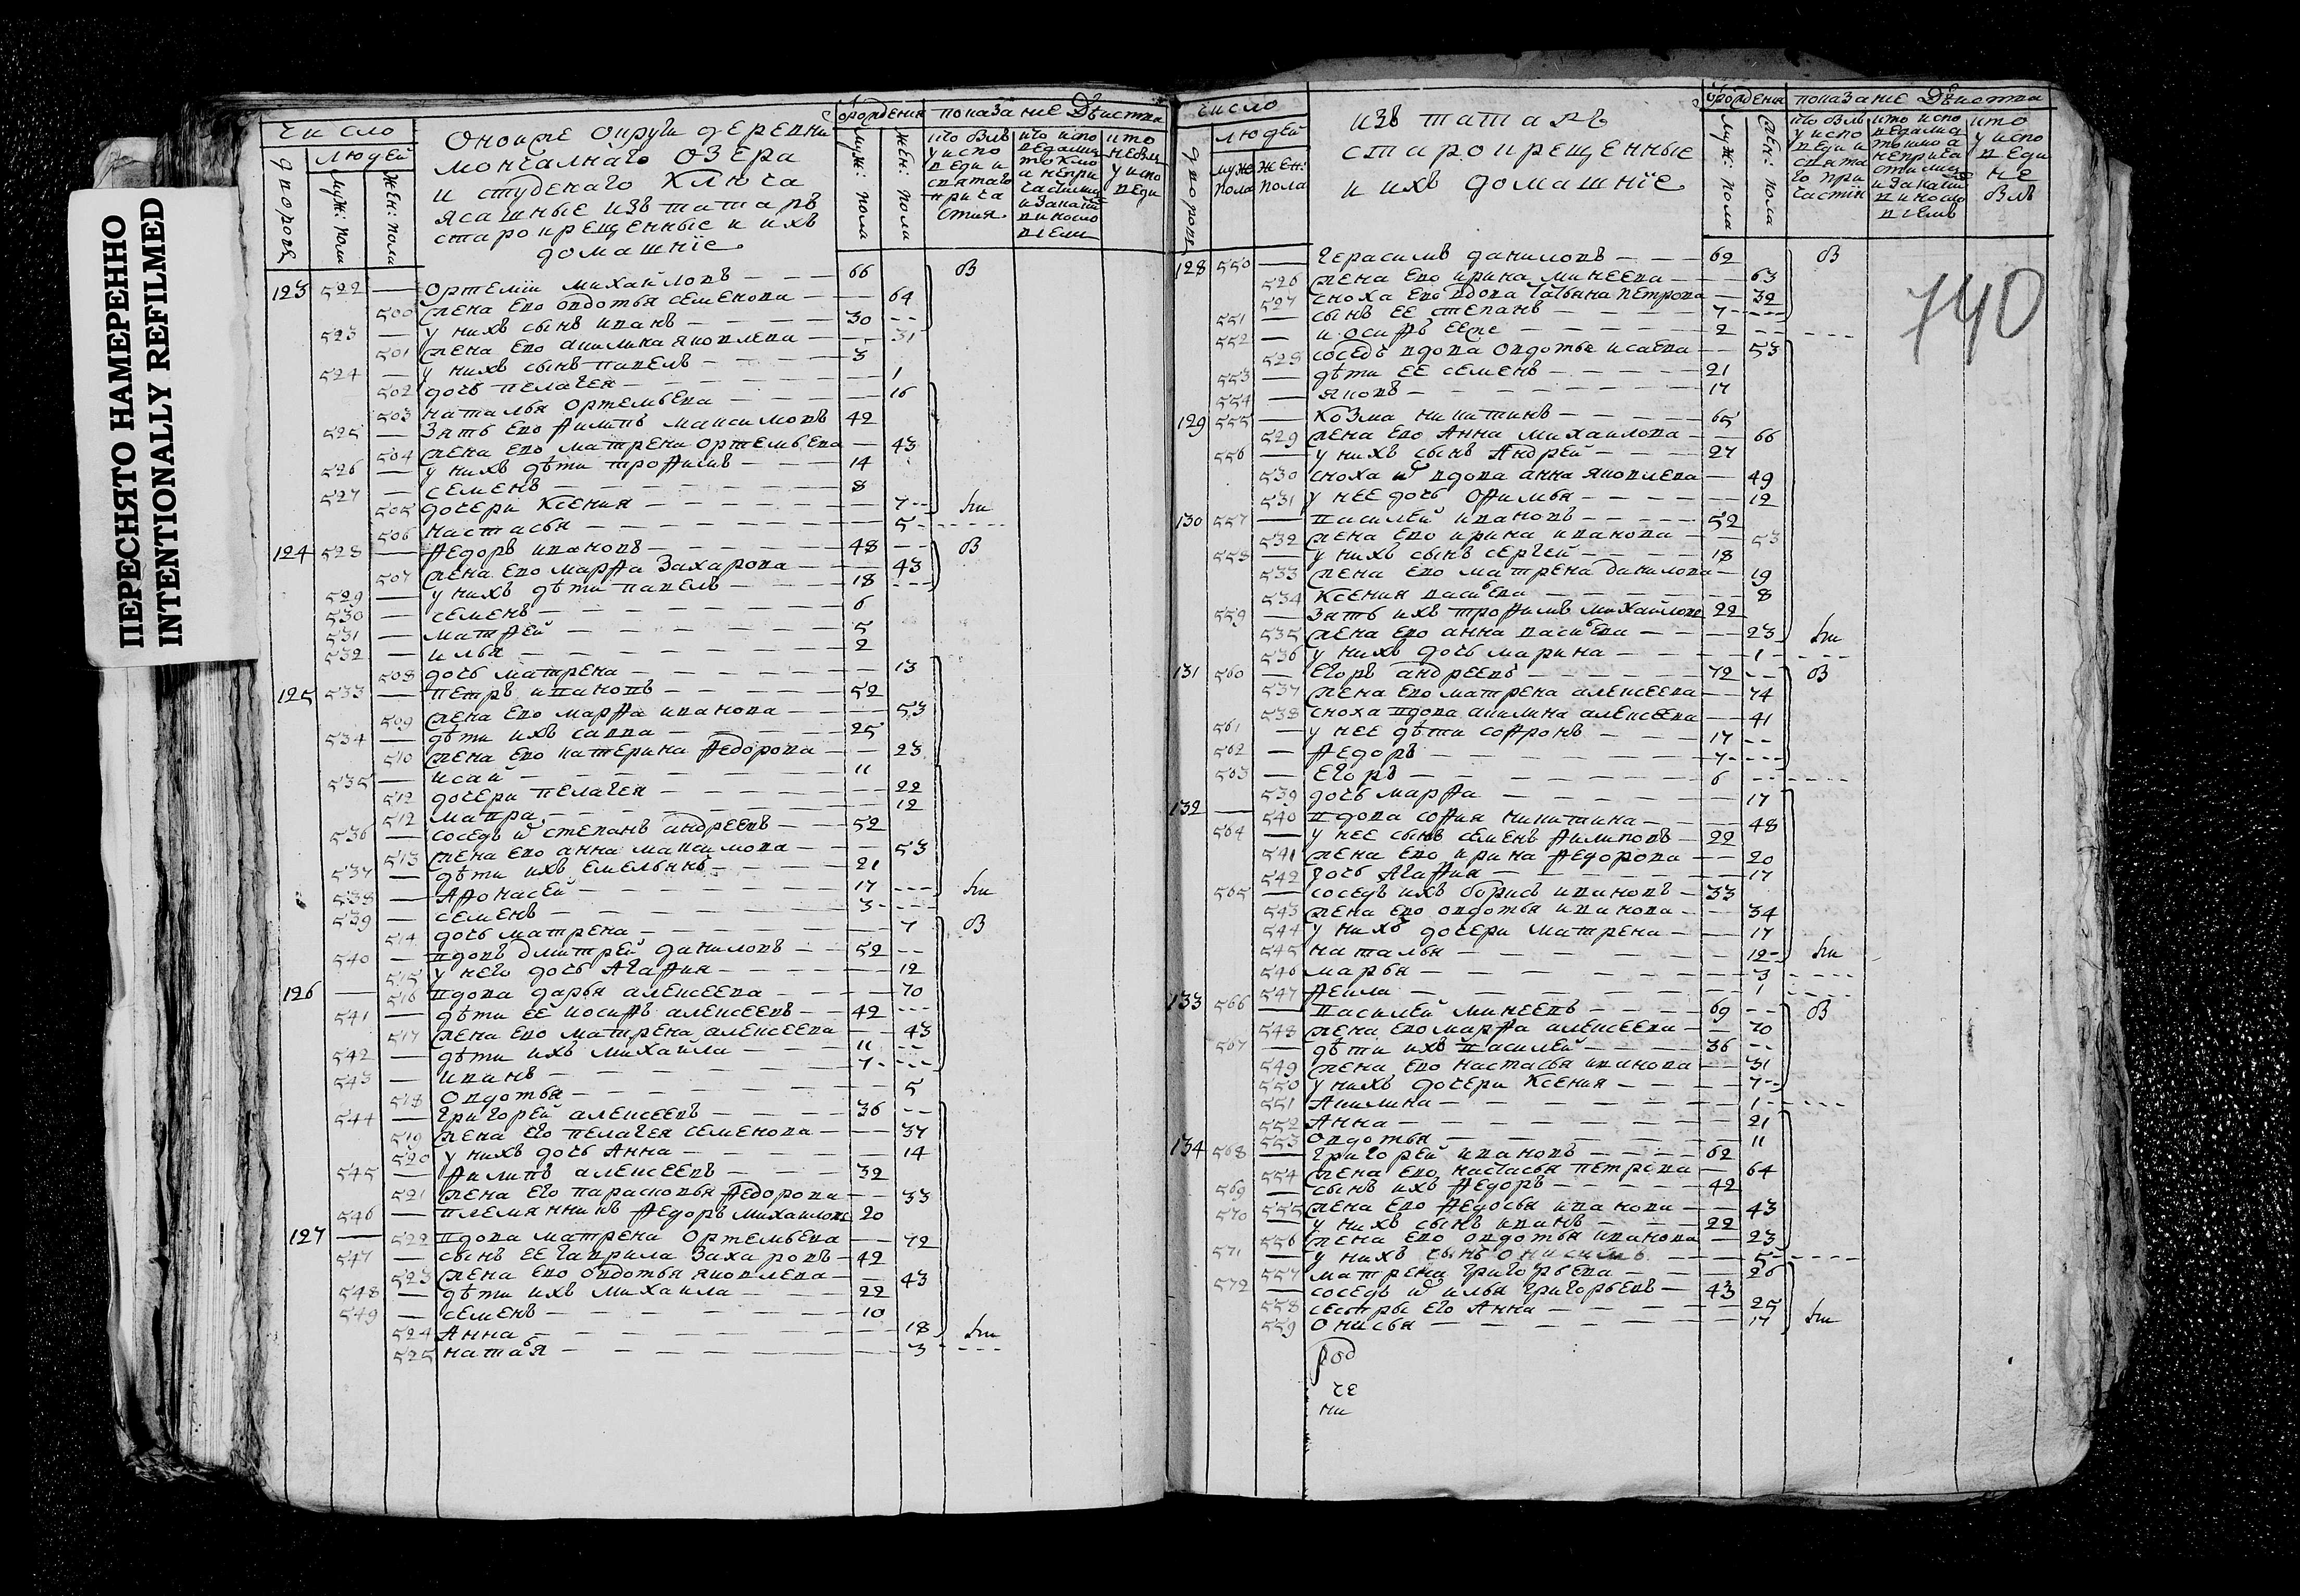 ПЕРЕСНЯТО НАМЕРЕННО
INTENTIONALLY REFILMED
число
людей
дворовъ
муж: пола
жен: пола
Оноиже округи деревни
мончалнаго озера
и студенаго ключа
ясашные изъ татаръ
старокрещенные и ихъ
домашніе
отрождения
муж: пола
жен: пола
показание действа
123 522 — Ортеміи михайловъ — 66 обв
500 жена ево овдотья семенова — 64
523 — у нихъ сынъ иванъ — 30
501 жена ево акилина яковлева — 31
524 — у нихъ сынъ павелъ — 3
502 дочь пелагея — 1
503 наталья ортемьева — 16
525 — зять ево филипъ максимовъ 42
504 жена ево матрена ортемьева — 43
526 — у нихъ дѣти трофимъ — 14
527 — семенъ — 8
505 дочери ксения — 7
506 настасья — 5
124 528 — федоръ ивановъ — 48
507 жена ево марфа захарова — 43
529 — у нихъ дѣти павелъ — 18
530 — семенъ — 6
531 — матфей — 5
532 — илья — 2
508 дочь матрена — 13
125 533 — петръ ивановъ — 52
509 жена ево марфа иванова — 53
534 — дѣти ихъ савва — 25
510 жена ево катерина федорова — 23
535 — исай — 11
512 дочери пелагея — 22
512 мавра — 12
536 — соседъ степанъ андреевъ — 52
513 жена ево анна максимова — 53
537 — дѣти ихъ емельянъ — 21
538 — афонасей — 17
539 — семенъ — 3
514 дочь матрена — 7
540 — вдовъ дмитрей даниловъ — 52
515 у него дочь агафия — 12
126 — 516 вдова дарья алексеева — 70
541 — дѣти ее иосифъ алексеевъ — 42
517 жена ево матрена алексеева — 43
542 — дѣти ихъ михайла — 11
543 — иванъ — 7
518 овдотья — 5
544 — григорей алексеевъ — 36
519 жена его пелагея семенова — 37
520 у нихъ дочь анна — 14
545 — филипъ алексеевъ — 32
521 жена его парасковья федорова — 33
546 — племянникъ федоръ михаиловъ 20
127 — 522 вдова матрена ортемьева — 72
547 — сынъ ее гаврила захаровъ — 42
523 жена ево овдотья яковлева — 43
548 — дѣти ихъ михаила — 22
549 — семенъ — 10
524 анна — 18
525 натаья — 3
число
людей
муже пола
жен: пола
изъ татаръ
старокрещенные
и ихъ домашніе
отрождения
муж: пола
жен: пола
показание действа
740
128 550 — герасимъ даниловъ — 62
526 жена ево ирина минеева — 63
527 сноха ево вдова татьяна петрова — 32
551 — сынъ ее степанъ — 7
552 — иосифъ ееже — 2
528 соседъ вдова овдотья исаева — 53
553 — дѣти ее семенъ — 21
554 — яковъ — 17
129 555 — козма никитинъ — 65
529 жена ево анна михаилова — 66
556 — у нихъ сынъ андрей — 27
530 сноха вдова анна яковлева — 49
531 у нее дочь офимья — 12
130 557 — василей ивановъ — 52
532 жена ево ирина иванова — 53
558 — у нихъ сынъ сергей — 18
533 жена ево матрена данилова — 19
534 ксения васиева — 8
559 — зять ихъ трофимъ михайловъ 22
535 жена ево анна васиева — 23
536 у нихъ дочь марина — 1
131 560 — егоръ андреевъ — 72
537 жена ево матрена алексеева — 74
538 сноха вдова акилина алексеева — 41
561 — у нее дѣти софронъ — 17
562 — федоръ — 7
563 — егоръ — 6
539 дочь марфа — 17
132 — 540 вдова софия никитина — 48
564 — у нее сынъ семенъ филиповъ — 22
541 жена ево ирина федорова — 20
542 дочь агафия — 17
565 — соседъ ихъ борисъ ивановъ — 33
543 жена ево овдотья иванова — 34
544 у нихъ дочери матрена — 17
545 наталья — 12
546 марья — 3
547 фекла — 1
133 566 — василей минеевъ — 69
548 жена ево марфа алексеева — 70
567 — дѣти ихъ василей — 36
549 жена ево настасья иванова — 31
550 у нихъ дочери ксения — 7
551 акилина — 1
552 анна — 21
553 овдотья — 11
134 568 — григорей ивановъ — 62
554 жена ево настасья петрова — 64
569 — сынъ ихъ федоръ — 42
555 жена ево федосья иванова — 43
570 — у нихъ сынъ иванъ — 22
556 жена ево овдотья иванова — 23
571 — у нихъ сынъ онисимъ — 5
557 матрена григорьева — 26
572 — соседъ илья григорьевъ — 43
558 сестры его анна — 25
559 онисья — 17